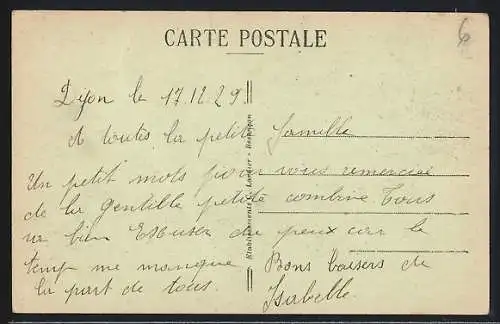 CARTE POSTALE
6
Dijon le 17.12.29
A toutes la petite famille
Un petit mots pour vous remercier
de la gentille petite combine Tous
va bien Excuser du peux car le
temp me manque Bons baisers de
la part de tous. Isabelle.
Etablissements C. Lardier - Besançon